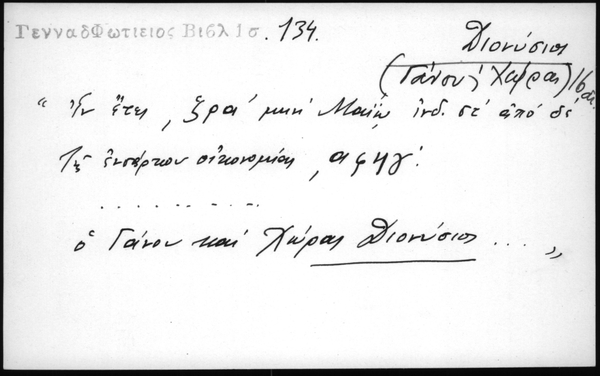 ΓενναδΦωτιειος Βιβλ 1σ. 134.
Διονύσιος
(Γάνου & Χώρας) 16 αἰ.
“ Ἐν ἔτει, ζρα' μηνὶ Μαΐῳ ἰνδ. στ' ἀπό δὲ
τῆς ἐνσάρκου οἰκονομίας, αφηγ'.
. . . . . . . . . .
ὁ Γάνου καὶ Χώρας Διονύσιος ... „